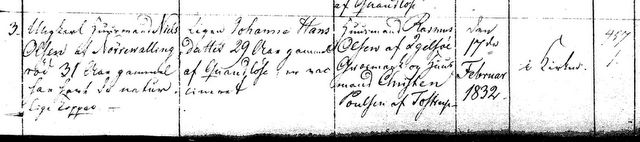 af Quandløse
3.
Ungkarl Huusmand Niels
Olsen af Nørrevalling
rød 31 Aar gammel
har havt de natur
lige Kopper
Pigen Johanne Hans
datter 29 Aar gammel
af Quandløse er vac
cineret
Huusmand Rasmus
Olsen af
og Huus
mand Christen
Poulsen af Tostrup
Den
17de
Februar
1832
i Kirken